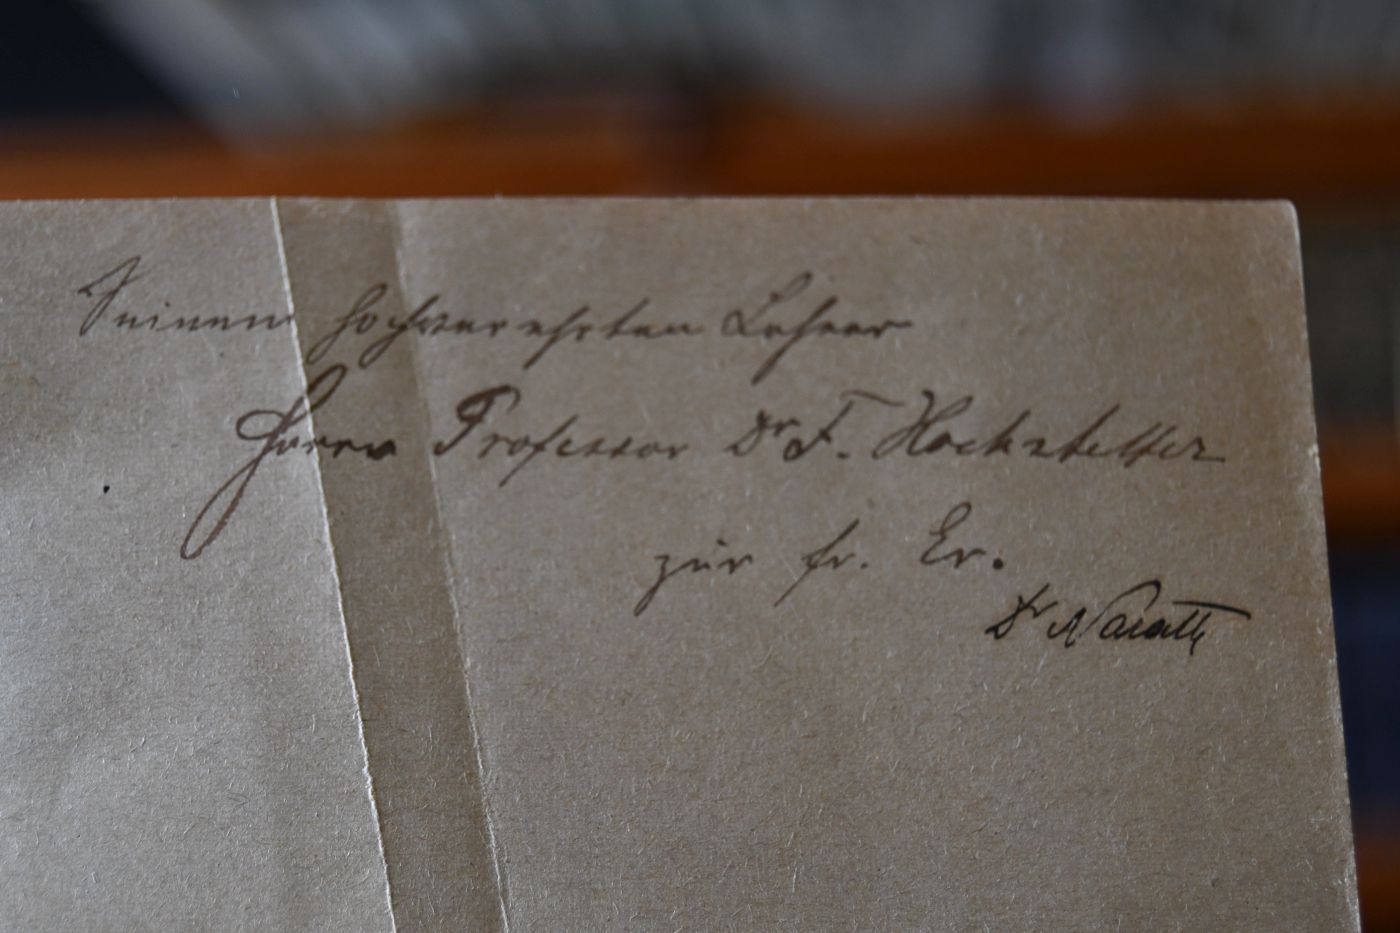 Seinem hochverehrten Lehrer
Herrn Professor Dr F. Hochstetter
zur fr. Er.
Dr Narath